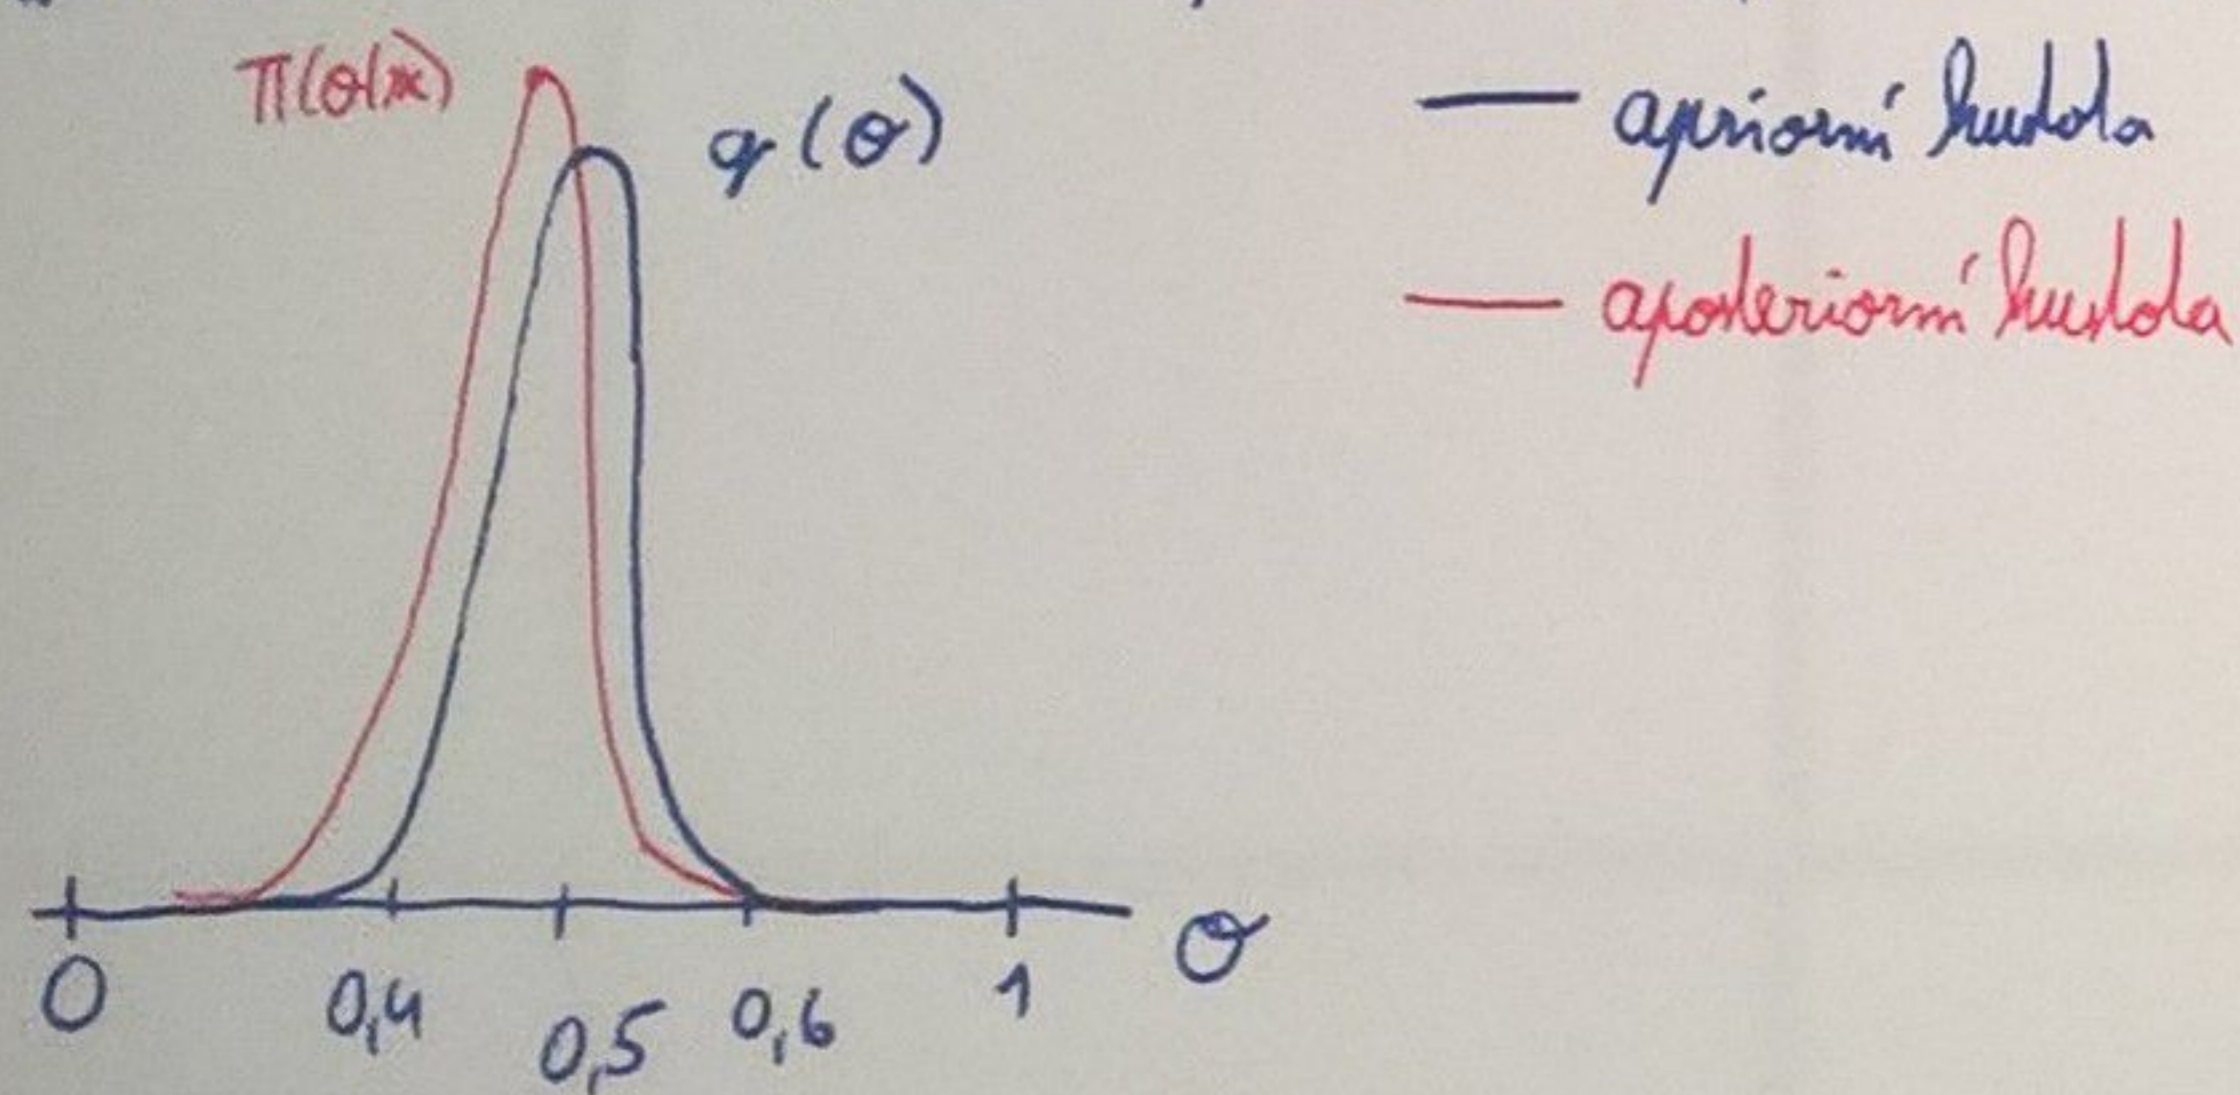 π(θ|x)
q(θ)
apriorní hustota
aposteriorní hustota
0
0,4
0,5
0,6
1
θ